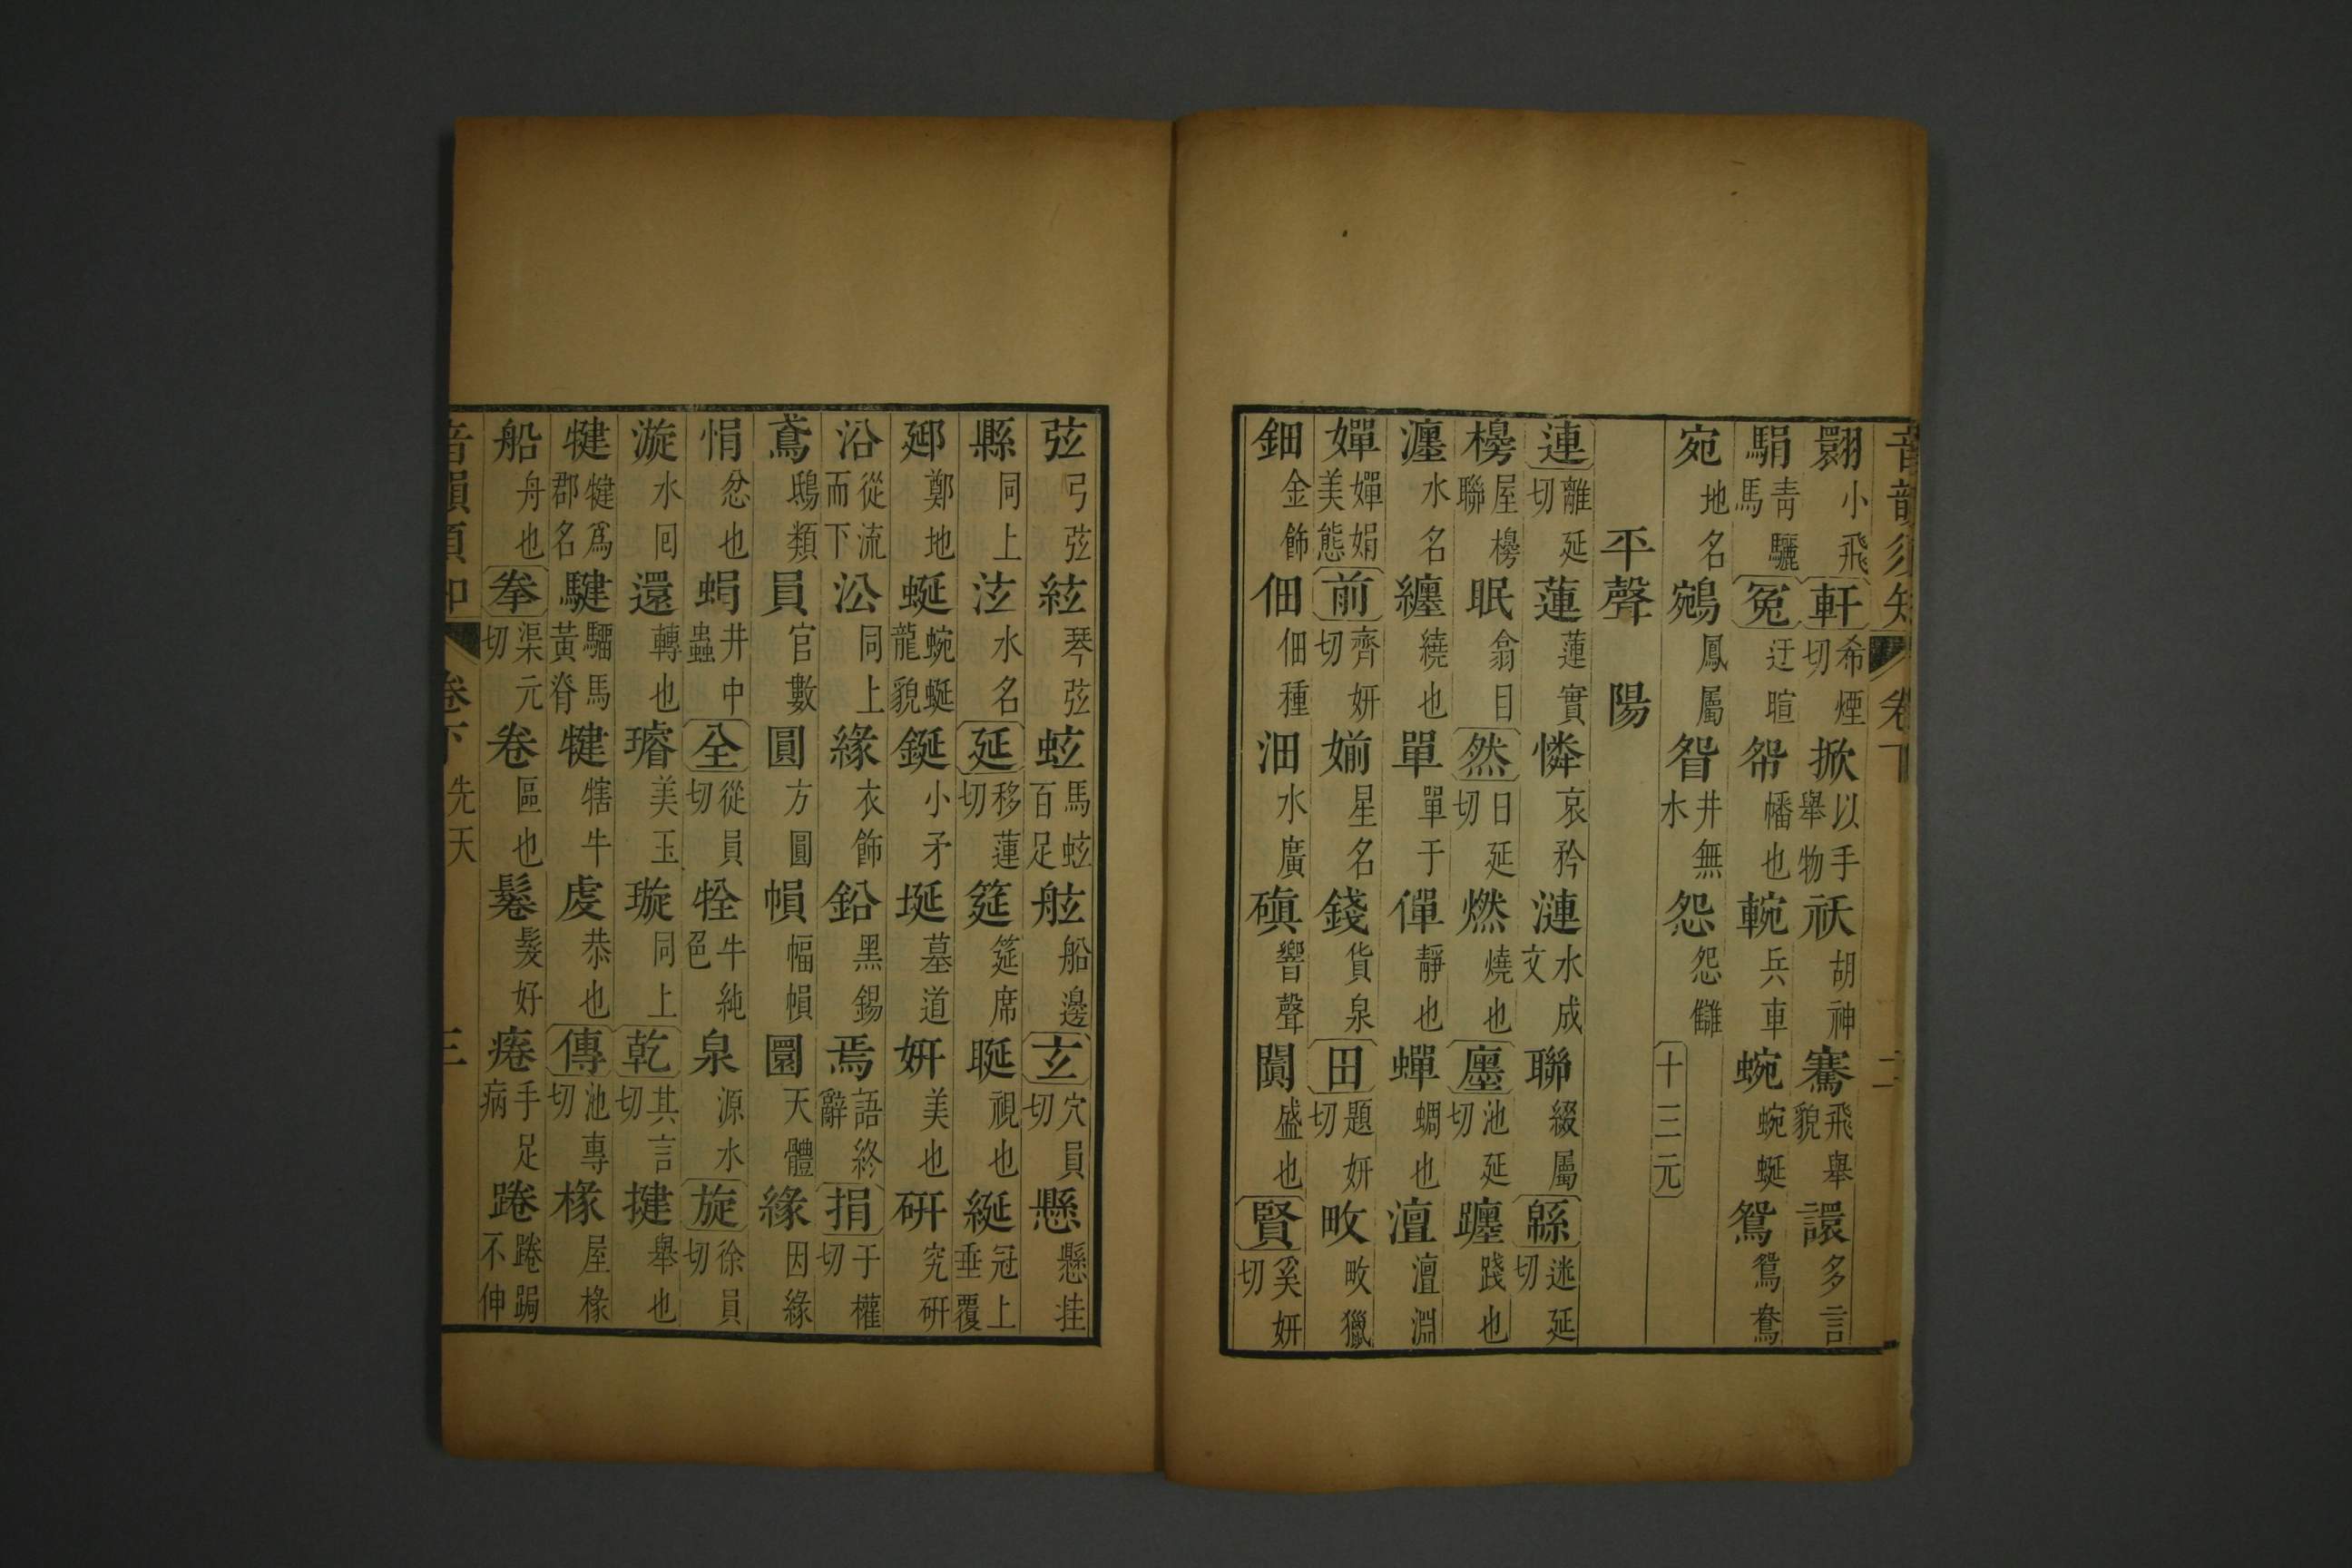 音韻須知 卷下 二
翾小飛軒希煙切掀以手舉物祆胡神騫飛舉貌讙多言
駽青驪馬冤迂暄切帤幡也輓兵車蜿蜿蜒鴛鴛鴦
宛地名鵷鳳屬眢井無水怨怨讎 十三元
平聲 陽
連離延切蓮蓮實憐哀矜漣水成文聯綴屬緜迷延切
櫋屋櫋聯眠翕目然日延切燃燒也廛池延切躔踐也
瀍水名纏繞也單單于僤靜也蟬蜩也澶澶淵
嬋嬋娟美態前齊妍切媊星名錢貨泉田題妍切畋畋獵
鈿金飾佃佃種沺水廣磌響聲闐盛也賢奚妍切
弦弓弦絃琴弦蚿馬蚿百足舷船邊玄穴員切懸懸挂
縣同上泫水名延移蓮切筵筵席䀽視也綖冠上垂覆
郔鄭地蜒蜿蜒龍貌鋋小矛埏墓道妍美也硏究硏
沿從流而下㳂同上緣衣飾鉛黑錫焉語終辭捐于權切
鳶鴟類員官數圓方圓幁幅幁圜天體緣因緣
悁忿也蜎井中蟲全從員切牷牛純色泉源水旋徐員切
漩水囘還轉也璿美玉璇同上乾其言切揵舉也
犍犍爲郡名騝騮馬黃脊犍犗牛虔恭也傳池專切椽屋椽
船舟也拳渠元切卷區也鬈髮好痯手足病踡踡跼不伸
音韻須知 卷下 先天 三